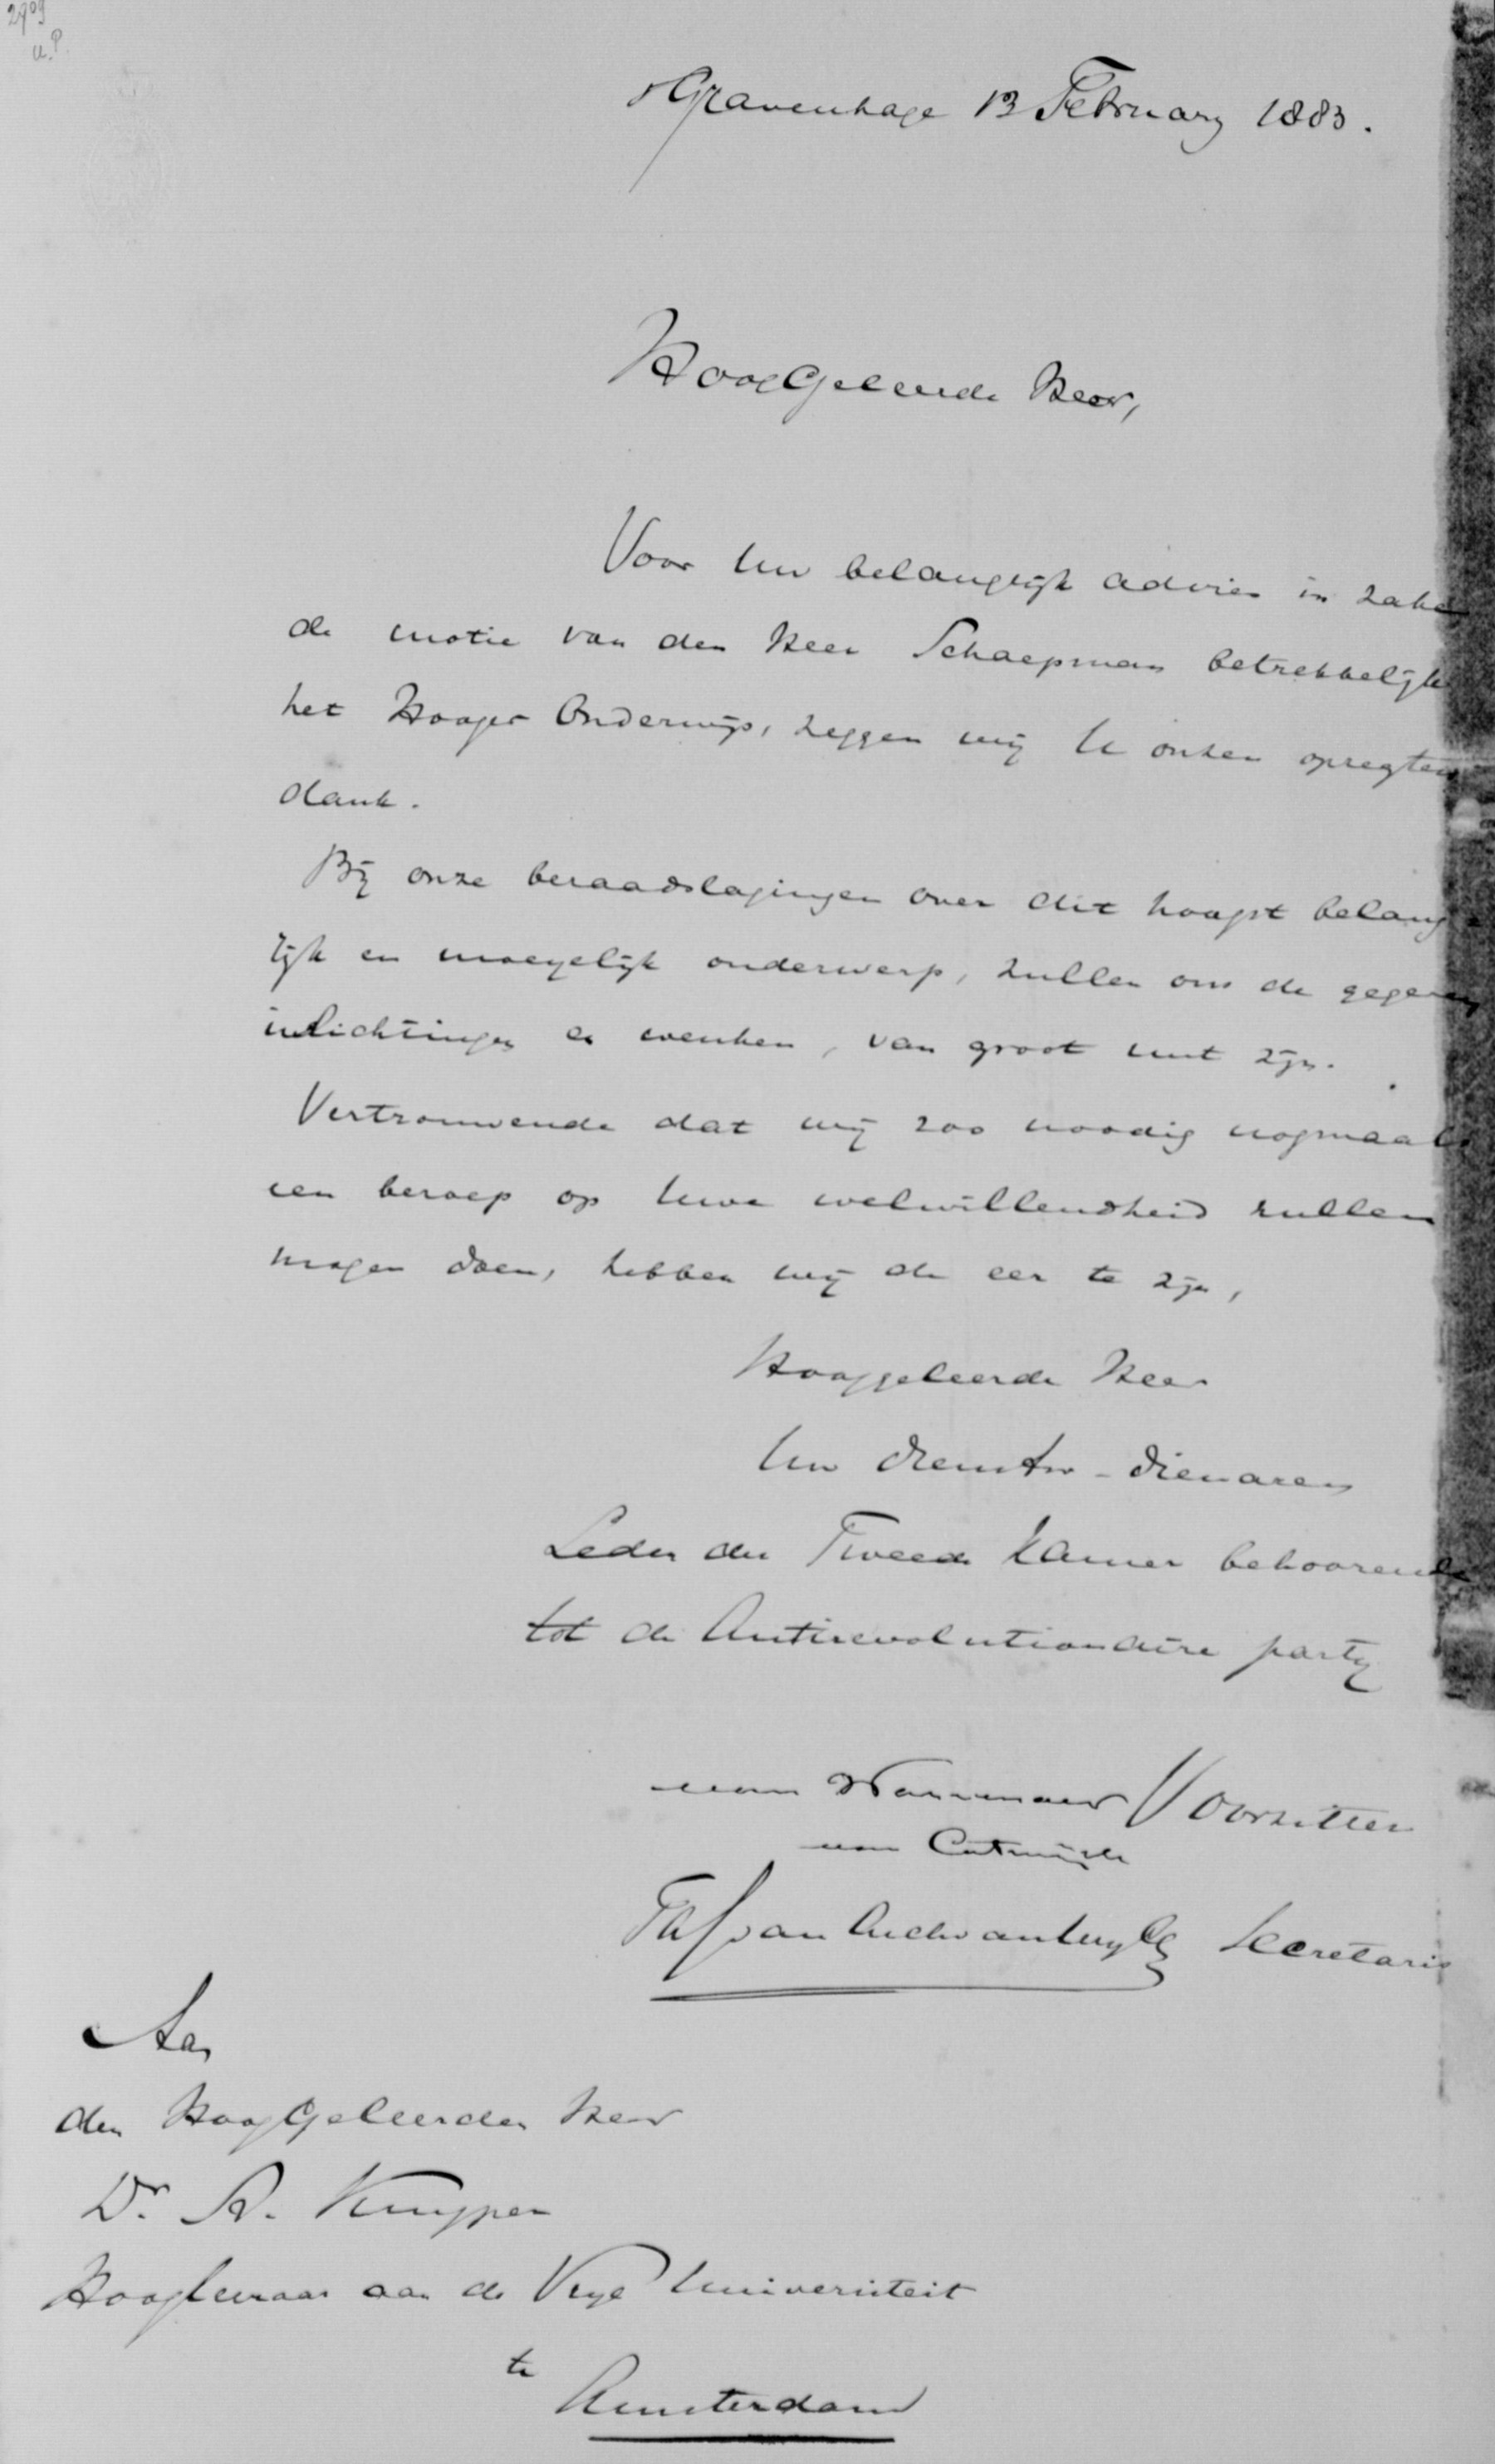 2909
u.P.
'sGravenhage 13 February 1883.
HoogGeleerde Heer,
Voor Uw belangrijk advies in zake
de motie van den Heer Schaepman betrekkelijk
het Hooger Onderwijs, zeggen wij U onzen opregten
dank.
Bij onze beraadslagingen over dit hoogst belang=
rijk en moeyelijk onderwerp, zullen ons de gegeven
inlichtingen en wenken, van groot nut zijn.
Vertrouwende dat wij zoo noodig nogmaals
een beroep op Uwe welwillendheid zullen
mogen doen, hebben wij de eer te zijn,
Hooggeleerde Heer
Uw dienstw - dienaren
Leden der Tweede Kamer behoorende
tot de Antirevolutionaire party
van Wassenaer Voorzitter
van Catwijck
Th van Lijnden Secretaris
Aan
den HoogGeleerden Heer
Dr. A. Kuyper
Hoogleeraar aan de Vrye Universiteit
te
Amsterdam